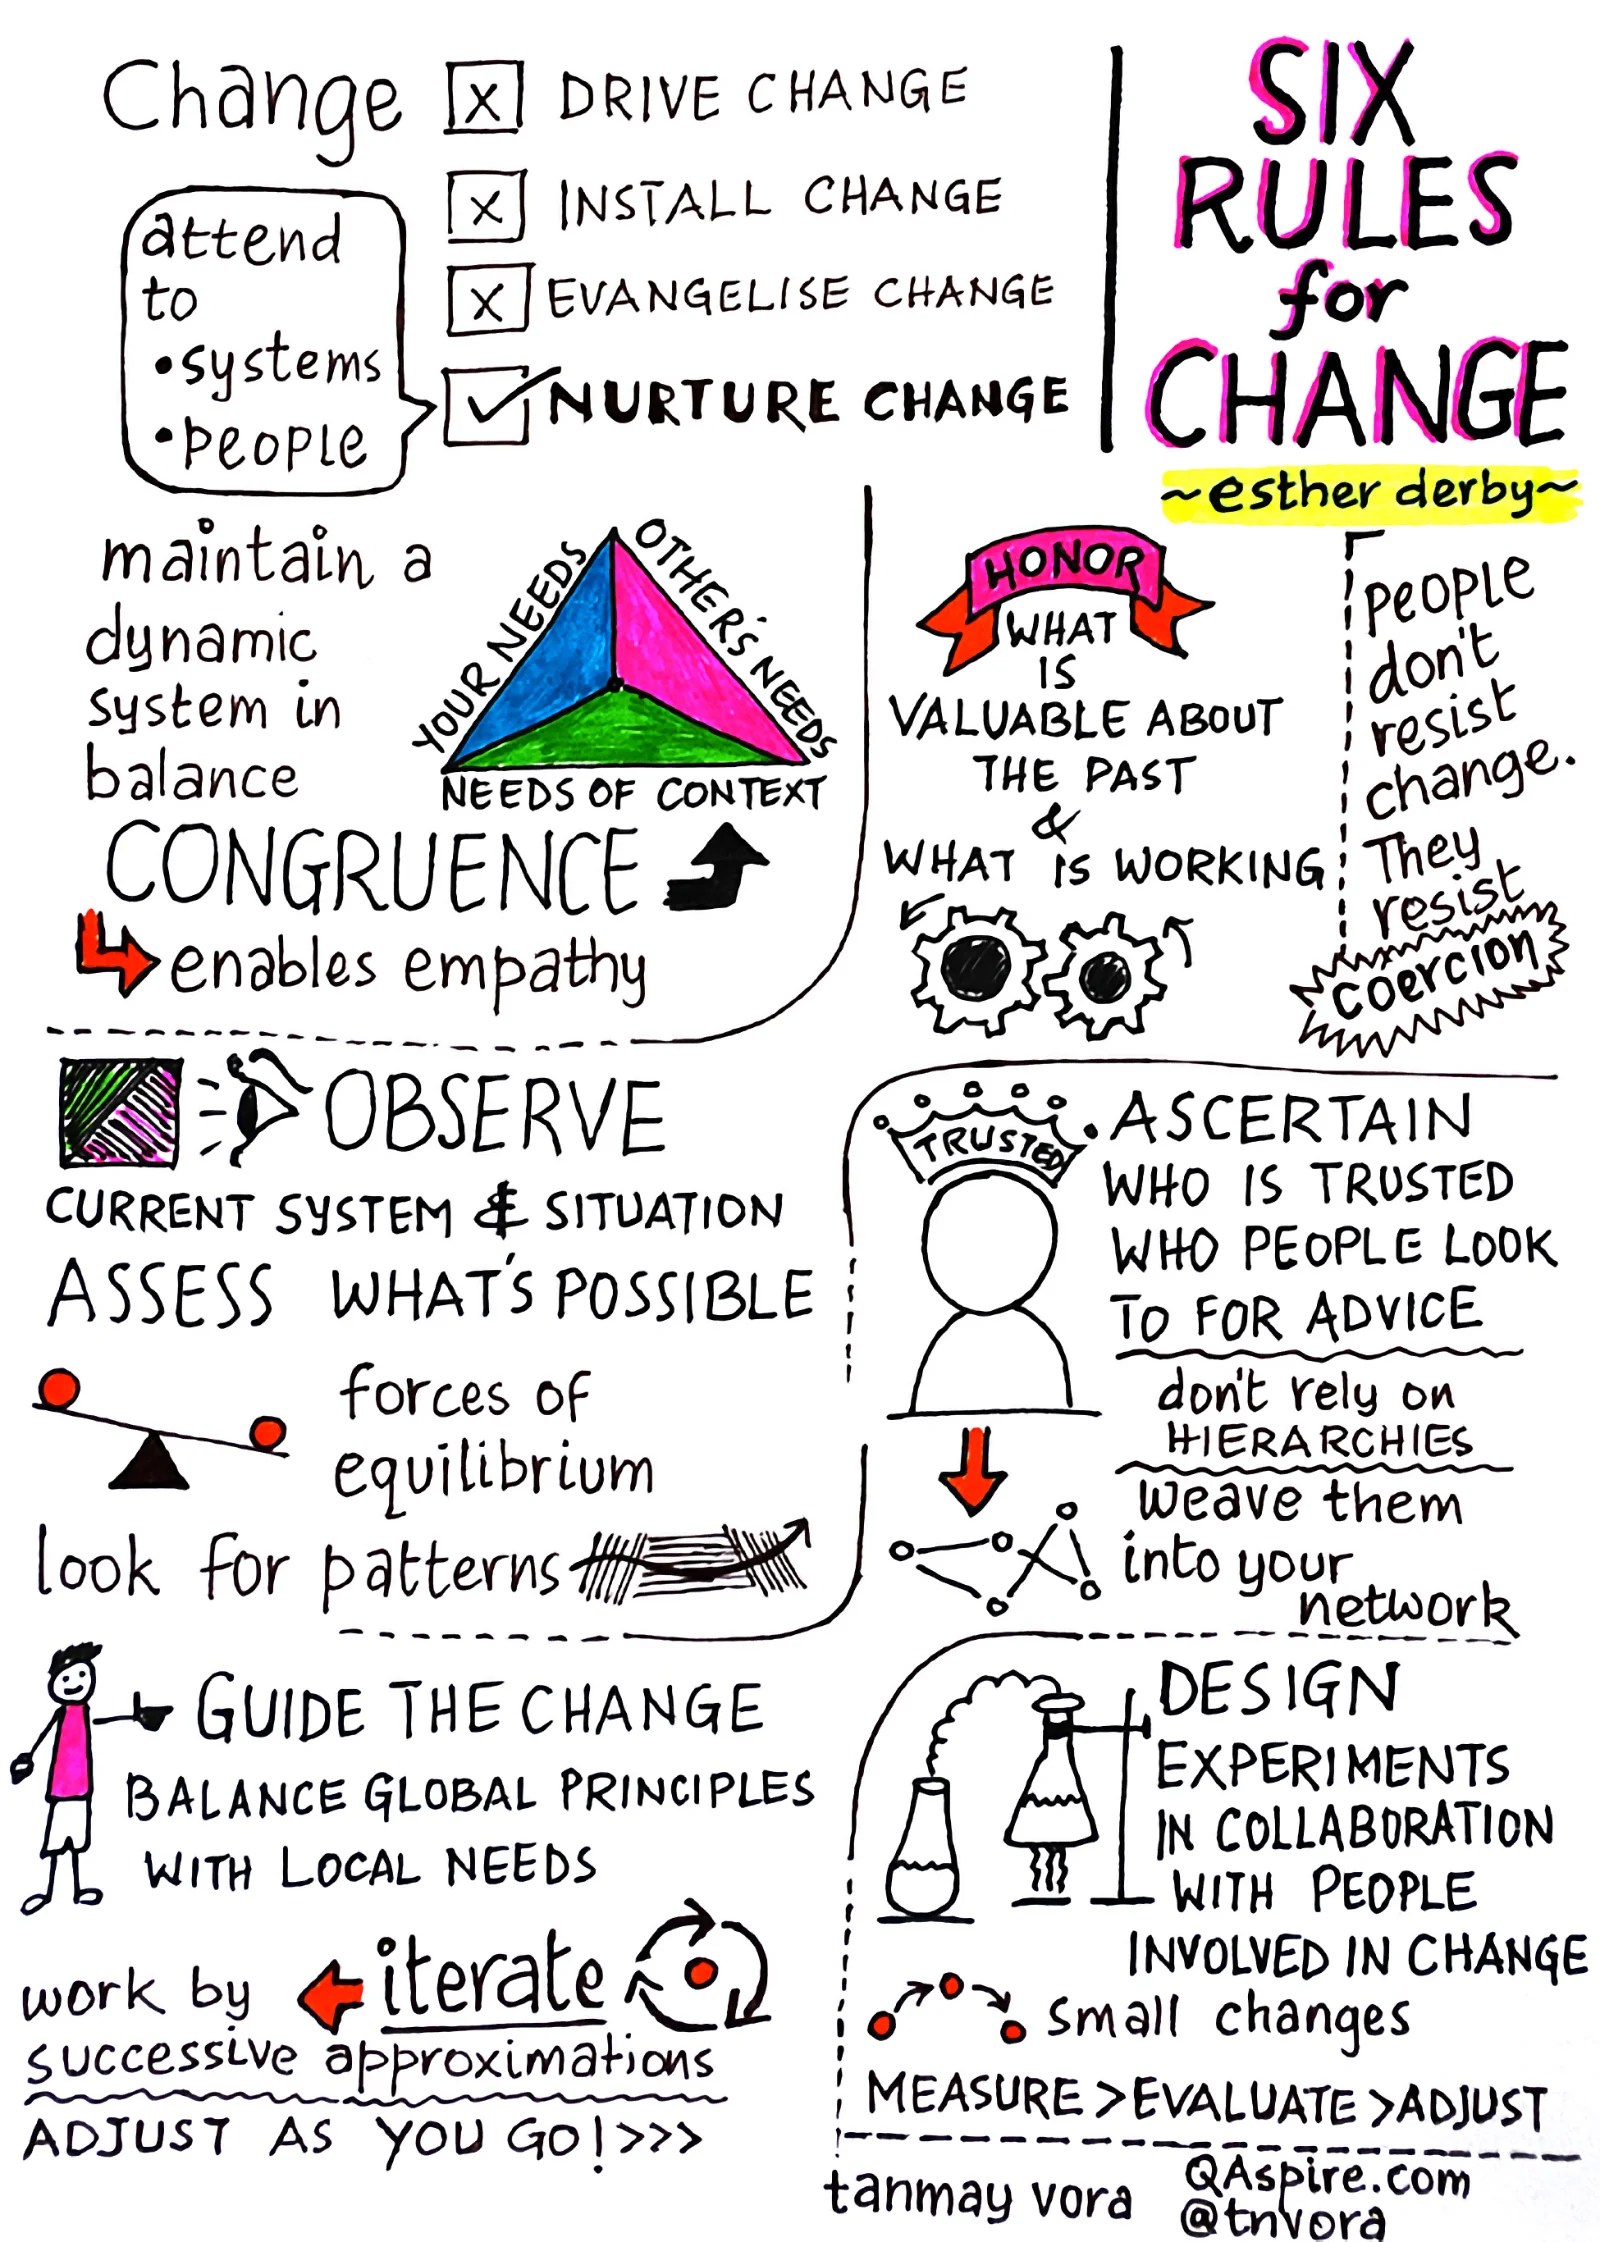 Change
X DRIVE CHANGE
X INSTALL CHANGE
X EVANGELISE CHANGE
NURTURE CHANGE
attend
to
•systems
•people
SIX
RULES
for
CHANGE
~esther derby~
maintain a
dynamic
system in
balance
YOUR NEEDS
OTHER'S NEEDS
NEEDS OF CONTEXT
CONGRUENCE
enables empathy
HONOR
WHAT
IS
VALUABLE ABOUT
THE PAST
&
WHAT IS WORKING
people
don't
resist
change.
They
resist
coercion
OBSERVE
CURRENT SYSTEM & SITUATION
ASSESS WHAT'S POSSIBLE
forces of
equilibrium
look for patterns
TRUSTED
ASCERTAIN
WHO IS TRUSTED
WHO PEOPLE LOOK
TO FOR ADVICE
don't rely on
HIERARCHIES
weave them
into your
network
GUIDE THE CHANGE
BALANCE GLOBAL PRINCIPLES
WITH LOCAL NEEDS
iterate
work by
successive approximations
ADJUST AS YOU GO! >>>
DESIGN
EXPERIMENTS
IN COLLABORATION
WITH PEOPLE
INVOLVED IN CHANGE
small changes
MEASURE > EVALUATE > ADJUST
tanmay vora
QAspire.com
@tnvora